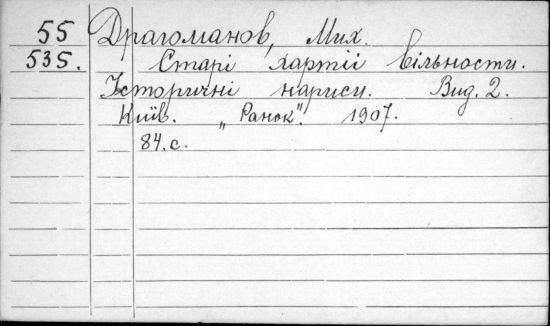 55 Драгоманов, Мих.
535. Старі хартії вільности.
Історичні нариси. Вид. 2.
Київ. „Ранок". 1907.
84. с.